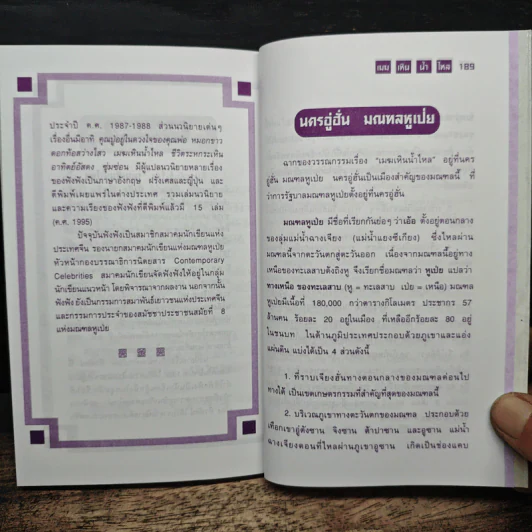 ประจำปี ค.ศ. 1987-1988 ส่วนนวนิยายเด่นๆ
เรื่องอื่นมีอาทิ คุณปู่อยู่ในดวงใจของคุณพ่อ หมอกขาว
ดอกท้อสว่างไสว เมฆเหินน้ำไหล ชีวิตระทกระเหิน
อาทิตย์อัสดง ชุ่มช่อน มีผู้แปลนวนิยายหลายเรื่อง
ของฟังฟังเป็นภาษาอังกฤษ ฝรั่งเศสและญี่ปุ่น และ
ตีพิมพ์เผยแพร่ในต่างประเทศ รวมเล่มนวนิยาย
และความเรียงของฟังฟังที่ตีพิมพ์แล้วมี 15 เล่ม
(ค.ศ. 1995)
ปัจจุบันฟังฟังเป็นสมาชิกสมาคมนักเขียนแห่ง
ประเทศจีน รองนายกสมาคมนักเขียนแห่งมณฑลหูเป่ย
หัวหน้ากองบรรณาธิการนิตยสาร Contemporary
Celebrities สมาคมนักเขียนจัดฟังฟังให้อยู่ในกลุ่ม
นักเขียนแนวใหม่ โดยพิจารณาจากผลงาน นอกจากนั้น
ฟังฟัง ยังเป็นกรรมการสมาพันธ์เยาวชนแห่งประเทศจีน
และกรรมการประจำของสมัชชาประชาชนสมัยที่ 8
แห่งมณฑลหูเป่ย
เมฆ เหิน น้ำ ไหล 189
นครอู่ฮั่น มณฑลหูเป่ย
ฉากของวรรณกรรมเรื่อง "เมฆเหินน้ำไหล" อยู่ที่นคร
อู่ฮั่น มณฑลหูเป่ย นครอู่ฮั่นเป็นเมืองสำคัญของมณฑลนี้ ที่
ว่าการรัฐบาลมณฑลหูเป่ยตั้งอยู่ที่นครอู่ฮั่น
มณฑลหูเป่ย มีชื่อที่เรียกกันย่อๆ ว่าเอ้อ ตั้งอยู่ตอนกลาง
ของลุ่มแม่น้ำฉางเจียง (แม่น้ำแยงซีเกียง) ซึ่งไหลผ่าน
มณฑลนี้จากตะวันตกสู่ตะวันออก เนื่องจากมณฑลนี้อยู่ทาง
เหนือของทะเลสาบต้งถิงหู จึงเรียกชื่อมณฑลว่า หูเป่ย แปลว่า
ทางเหนือ ของทะเลสาบ (หู = ทะเลสาบ เป่ย = เหนือ) มณฑล
หูเป่ยมีเนื้อที่ 180,000 กว่าตารางกิโลเมตร ประชากร 57
ล้านคน ร้อยละ 20 อยู่ในเมือง ที่เหลืออีกร้อยละ 80 อยู่
ในชนบท ในด้านภูมิประเทศประกอบด้วยภูเขาและแอ่ง
แผ่นดิน แบ่งได้เป็น 4 ส่วนดังนี้
1. ที่ราบเจียงฮั่นทางตอนกลางของมณฑลค่อนไป
ทางใต้ เป็นเขตเกษตรกรรมที่สำคัญที่สุดของมณฑลนี้
2. บริเวณภูเขาทางตะวันตกของมณฑล ประกอบด้วย
เทือกเขาอู่ตังซาน จิงซาน ต้าปาซาน และอูซาน แม่น้ำ
ฉางเจียงตอนที่ไหลผ่านภูเขาอูซาน เกิดเป็นช่องแคบ